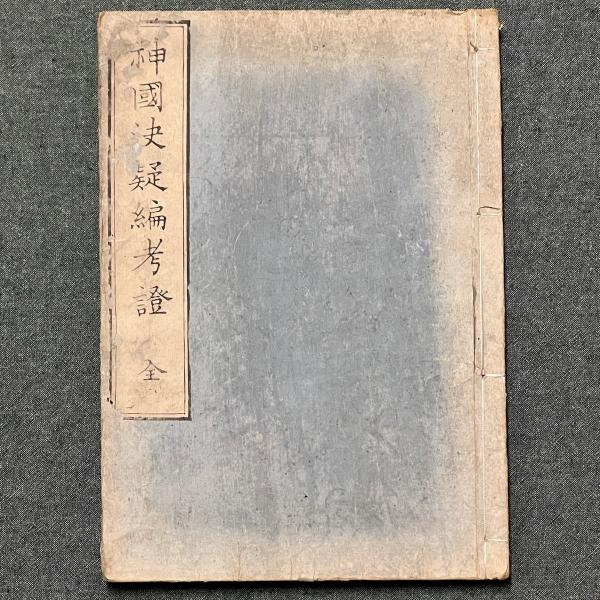 神國决疑編考證 全